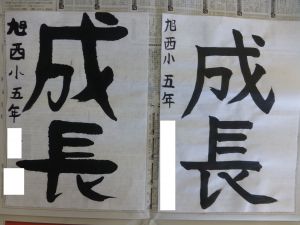 成長
旭西小 五年
成長
旭西小 五年